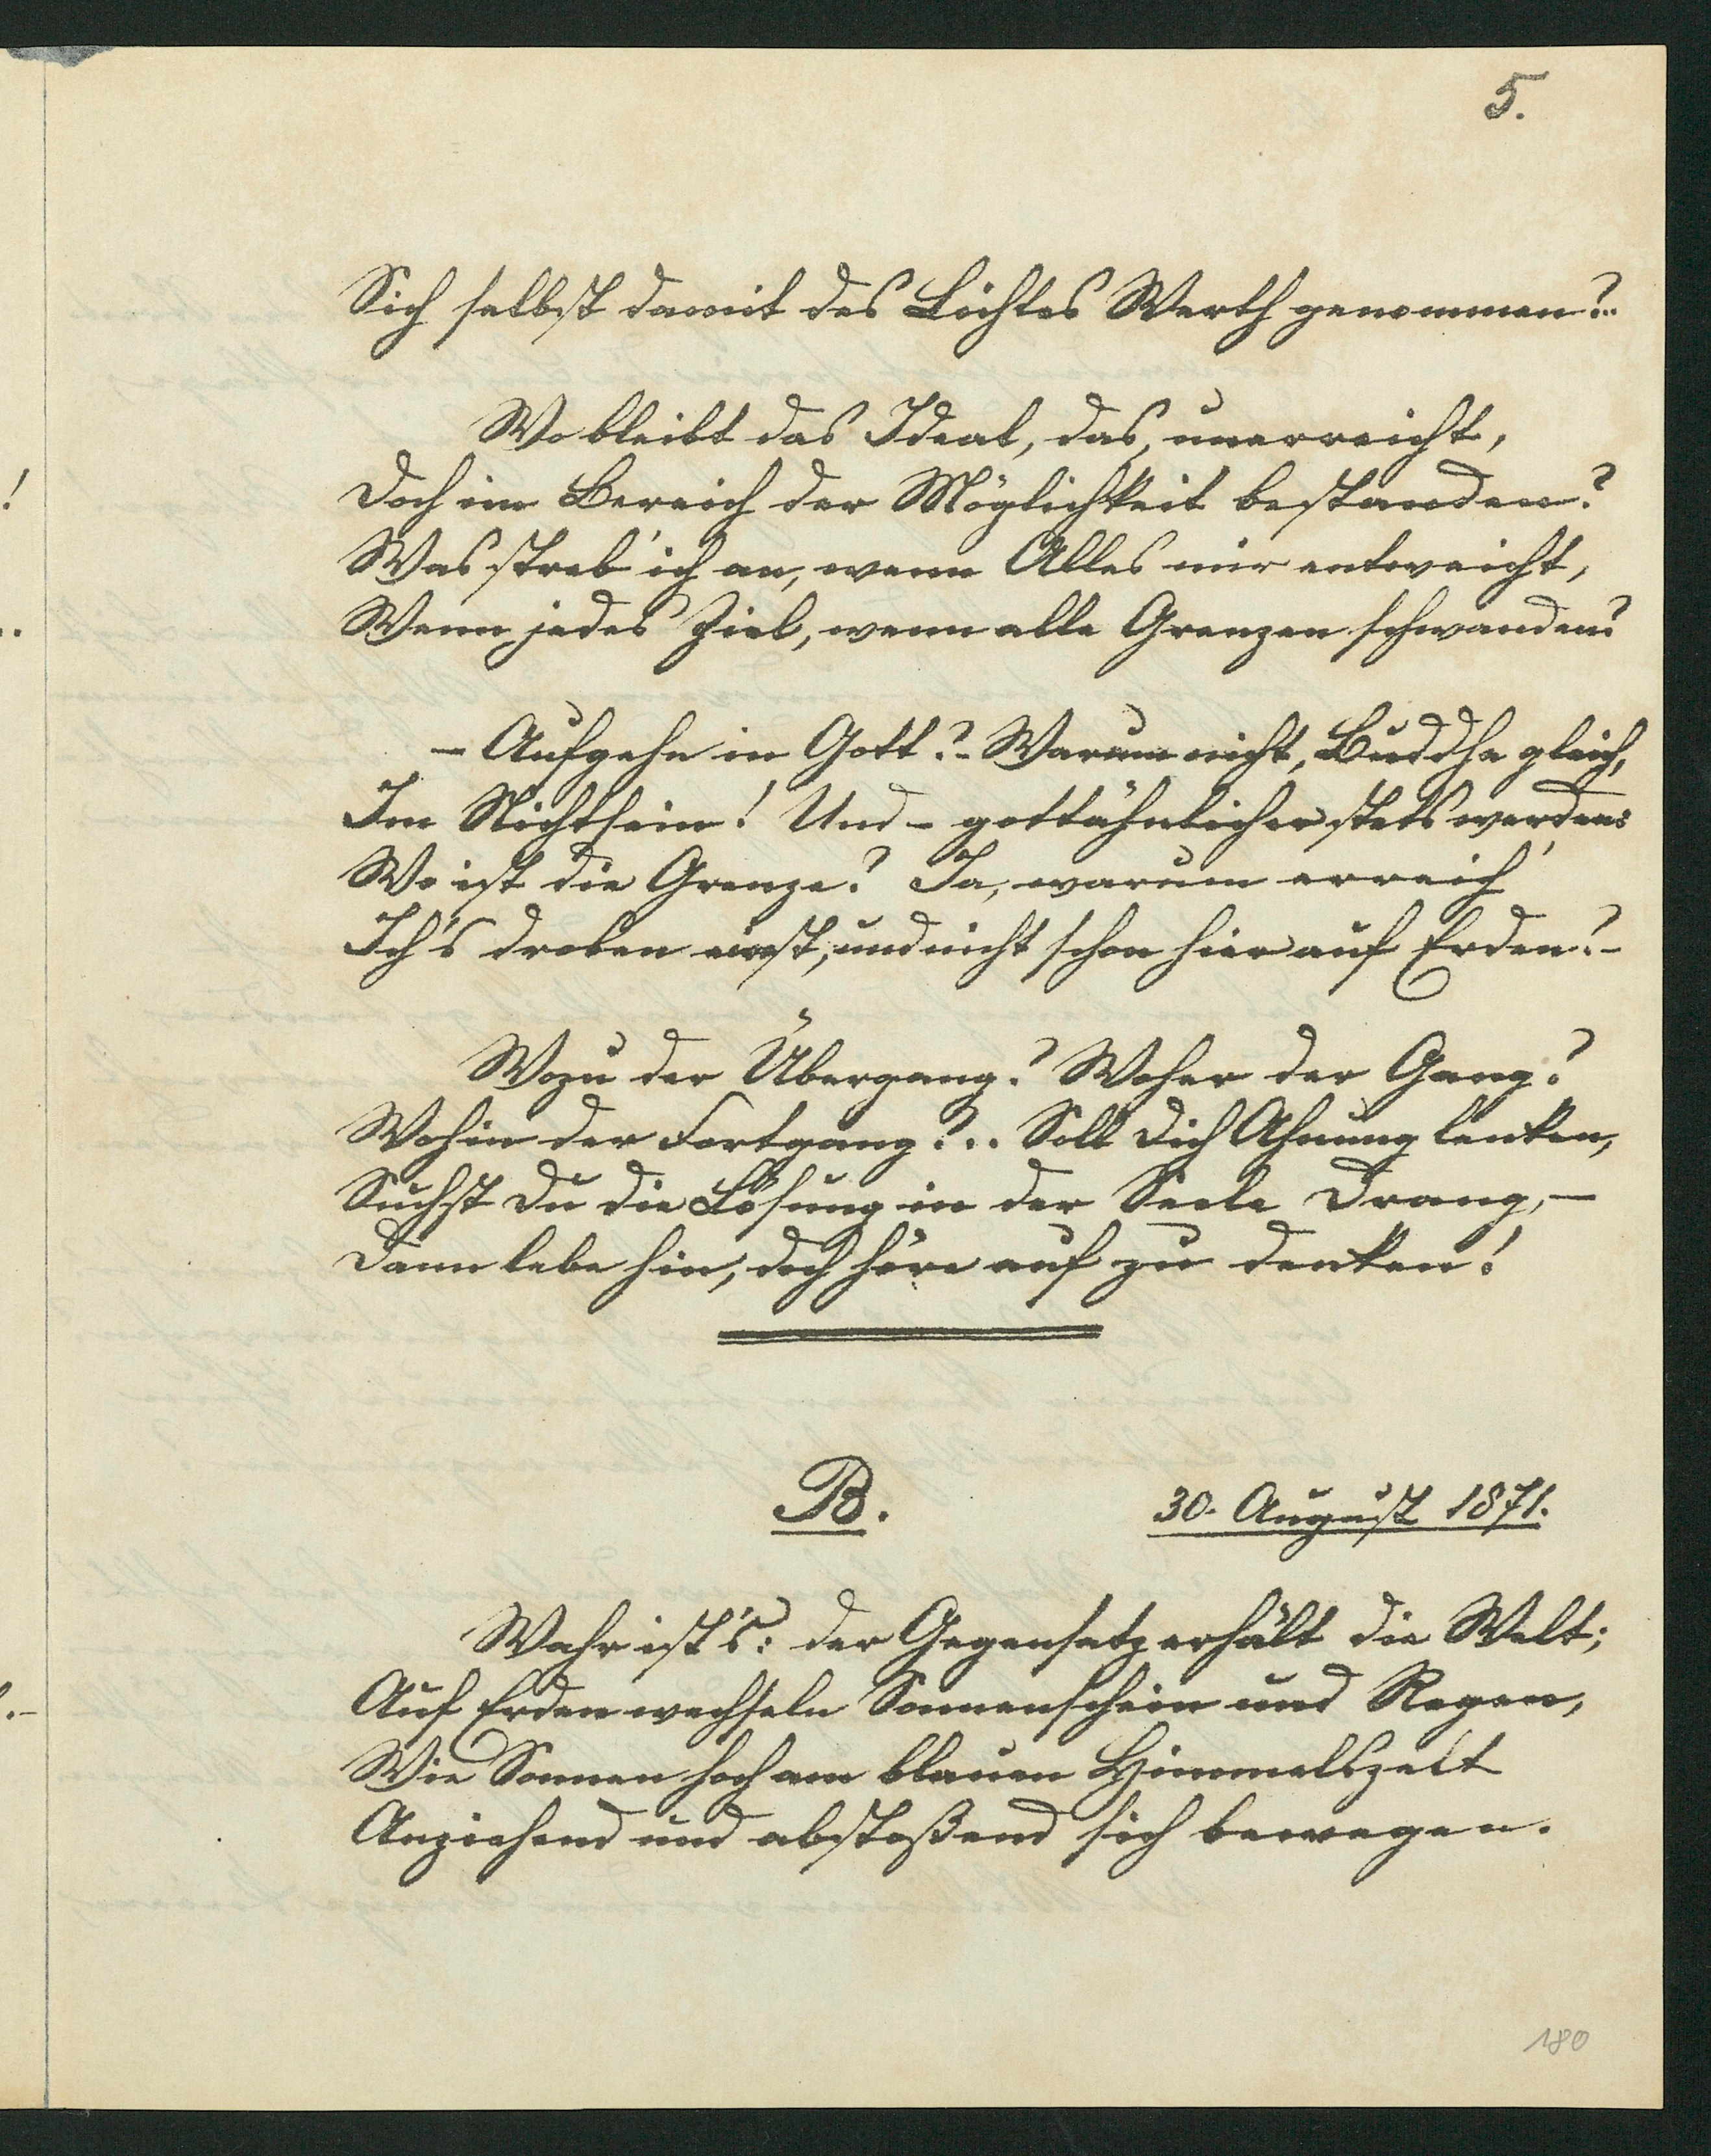 5.
Sich selbst damit des Lichtes Werth genommen?..
Wo bleibt das Ideal, das, unerreicht,
Doch im Bereich der Möglichkeit bestanden?
Was streb' ich an, wenn Alles mir entweicht,
Wenn jedes Ziel, wenn alle Grenzen schwanden?
– Aufgehn in Gott? – Warum nicht, Buddha gleich,
Im Nichtsein! Und – gottähnlicher stets werden:
Wo ist die Grenze? Ja, warum erreich'
Ich's droben einst, und nicht schon hier auf Erden? –
Wozu der Übergang? Woher der Gang?
Wohin der Fortgang?.. Soll Dich Ahnung lenken,
Suchst Du die Lösung in der Seele Drang, –
Dann lebe hin, doch höre auf zu denken!
B. 30. August 1871.
Wahr ist's: der Gegensatz erhält die Welt;
Auf Erden wechseln Sonnenschein und Regen,
Wie Sonnen hoch am blauen Himmelszelt
Anziehend und abstoßend sich bewegen.
180